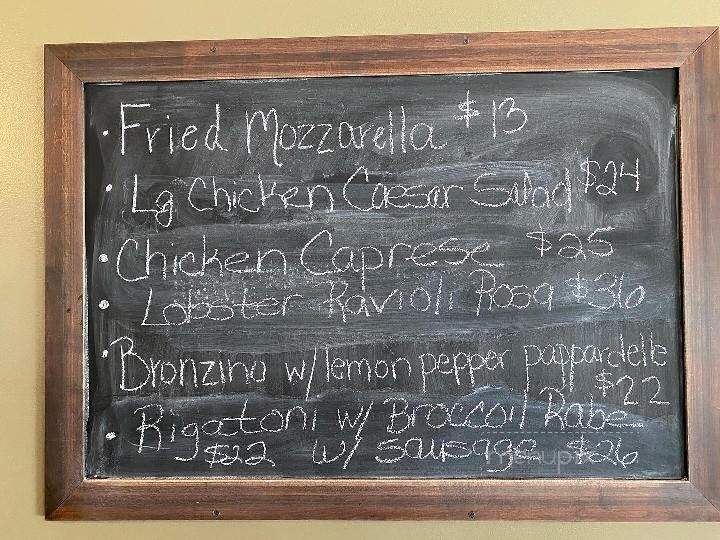 · Fried Mozzarella $13
· Lg Chicken Caesar Salad $24
· Chicken Caprese $25
· Lobster Ravioli Rosa $36
· Bronzino w/lemon pepper pappardelle
$22
· Rigatoni w/ Broccoli Rabe
$22 w/ sausage $26